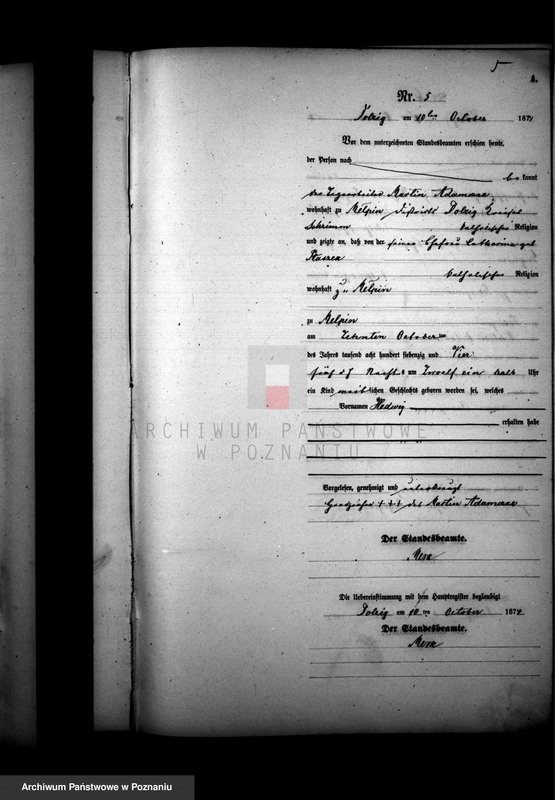 5
A.
Nr. 5
Dolzig am 10ten October 1874
Vor dem unterzeichneten Standesbeamten erschien heute,
der Person nach
be kannt
der Martin Adamczak
wohnhaft zu Melpin Dolzig Kreises
Schrimm katholischer Religion
und zeigte an, daß von der seiner Ehefrau Catharina geb
katholischer Religion
wohnhaft zu Melpin
zu Melpin
am Zehnten October
des Jahres tausend acht hundert siebenzig und Vier
Nachts um Zwoelf ein halb Uhr
ein Kind weib lichen Geschlechts geboren worden sei, welches
Vornamen Hedwig
erhalten habe
ARCHIWUM PAŃSTWOWE
W POZNANIU
Vorgelesen, genehmigt und unterkreuzt
Handzeichen +++ des Martin Adamczak
Der Standesbeamte.
Die Uebereinstimmung mit dem Hauptregister beglaubigt
Dolzig am 10 ten October 1874
Der Standesbeamte.
Archiwum Państwowe w Poznaniu